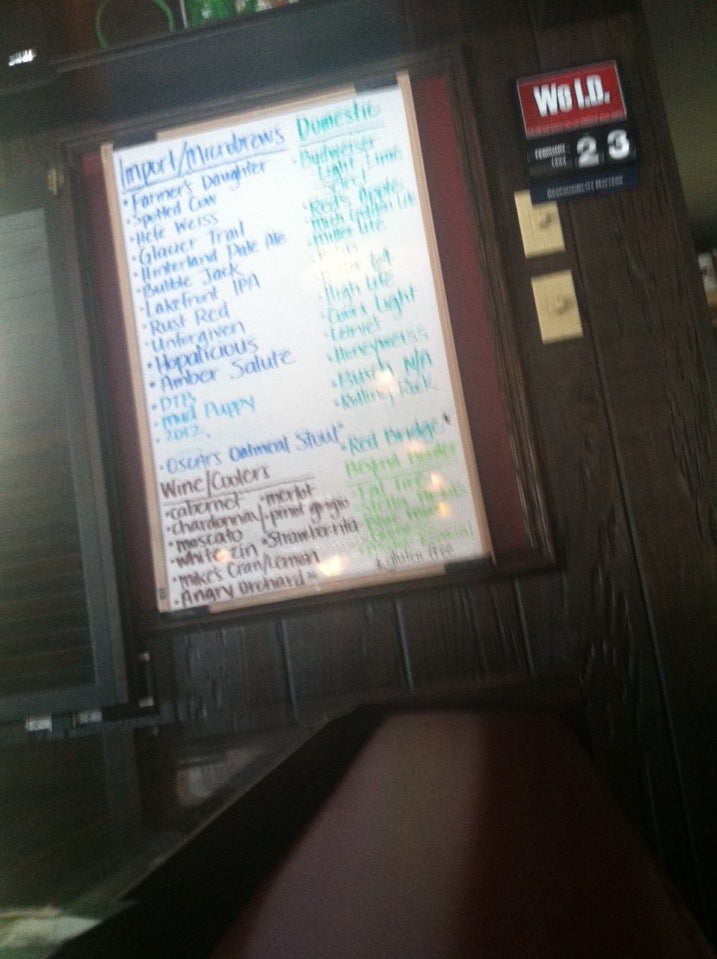 Import/Microbrews
• Farmer's Daughter
• Spotted Cow
• Hefe Weiss
• Glacier Trail
• Hinterland Pale Ale
• Bubble Jack
• Lakefront IPA
• Rust Red
• Unforgiven
• Hopalicious
• Amber Salute
• DTB
• Mud Puppy
• 2012
• Oscars Oatmeal Stout
Domestic
• Budweiser
Light Lime
• Red's Apple
• Mich Golden Lite
• Miller Lite
• High Life
• Coors Light
• Honeyweiss
• Busch N/A
• Rolling Rock
• Red Bridge *
Beyond Border
Fat Tire
Wine/Coolers
• cabernet • merlot
• chardonnay • pinot grigio
• moscato • Strawber-rita
• white zin
• mike's Cran/Lemon
• Angry Orchard *
* Gluten Free
We I.D.
2 3
RESPONSIBILITY MATTERS